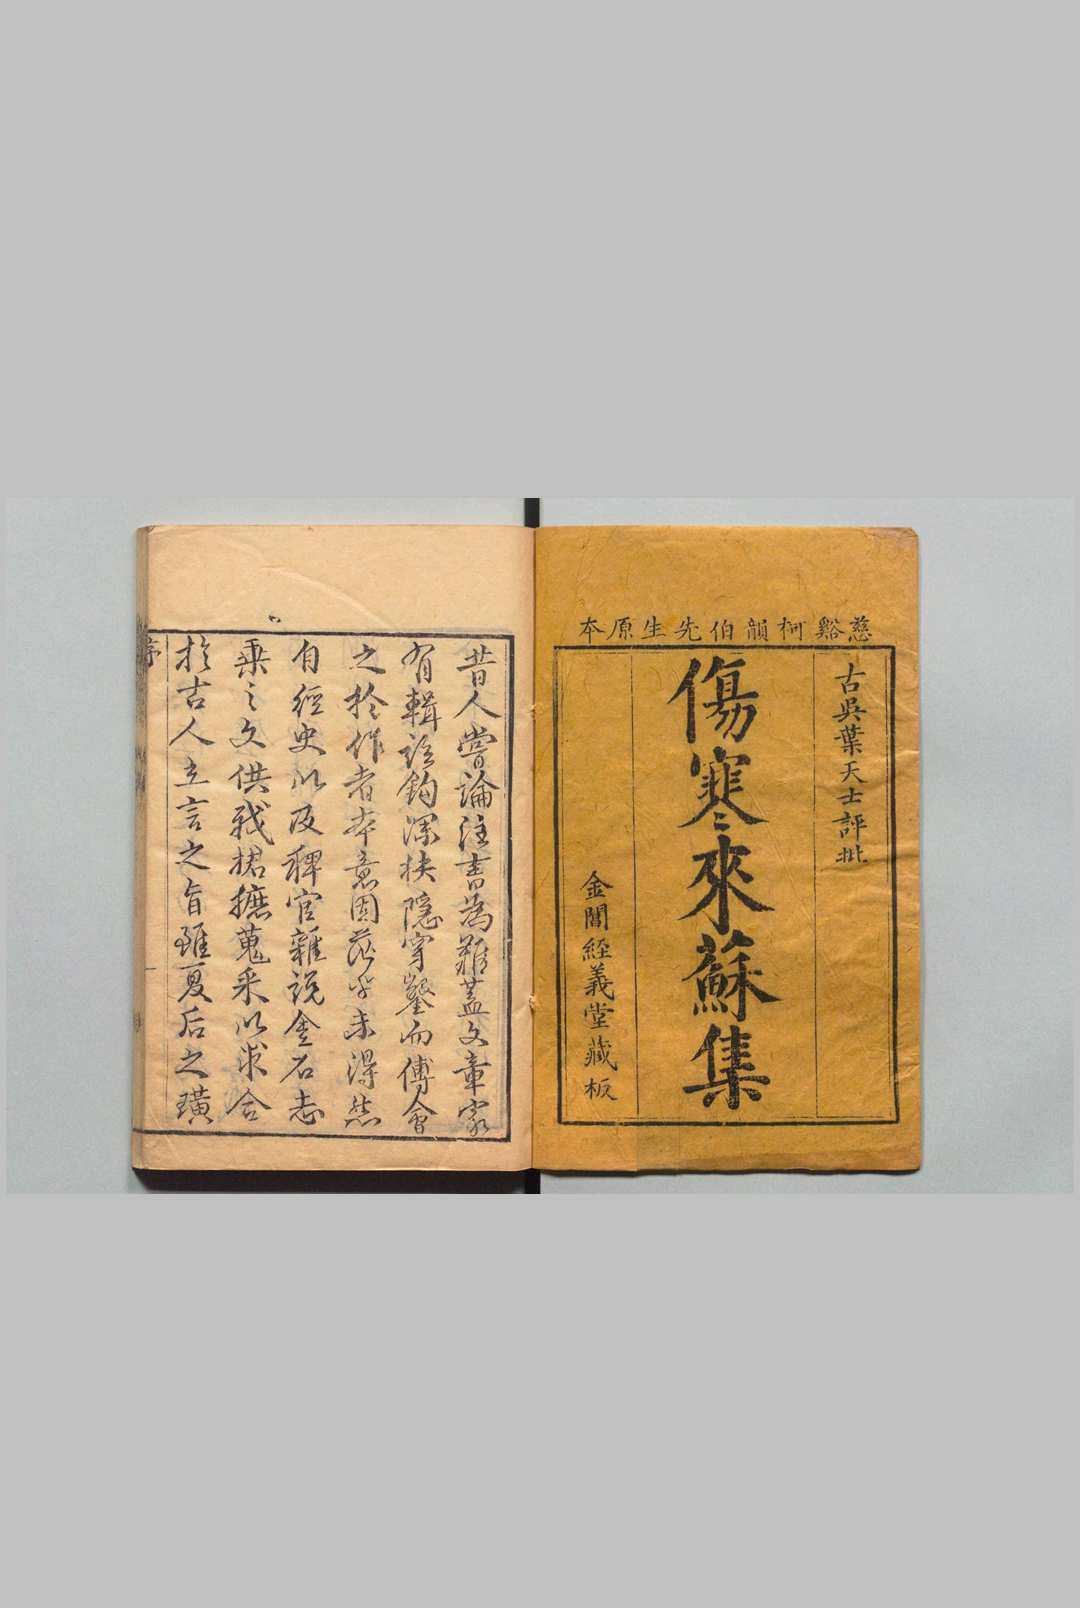 慈谿柯韻伯先生原本
古吳葉天士評批
傷寒來蘇集
金閶經義堂藏板
昔人嘗論注書為難蓋文章家
有輯詮鈎深抉隱穿鑿而傅會
之於作者本意固茫乎未得然
自經史以及稗官雜說金石志
乘之文供我捃摭蒐采以求合
於古人立言之旨雖夏后之璜
序